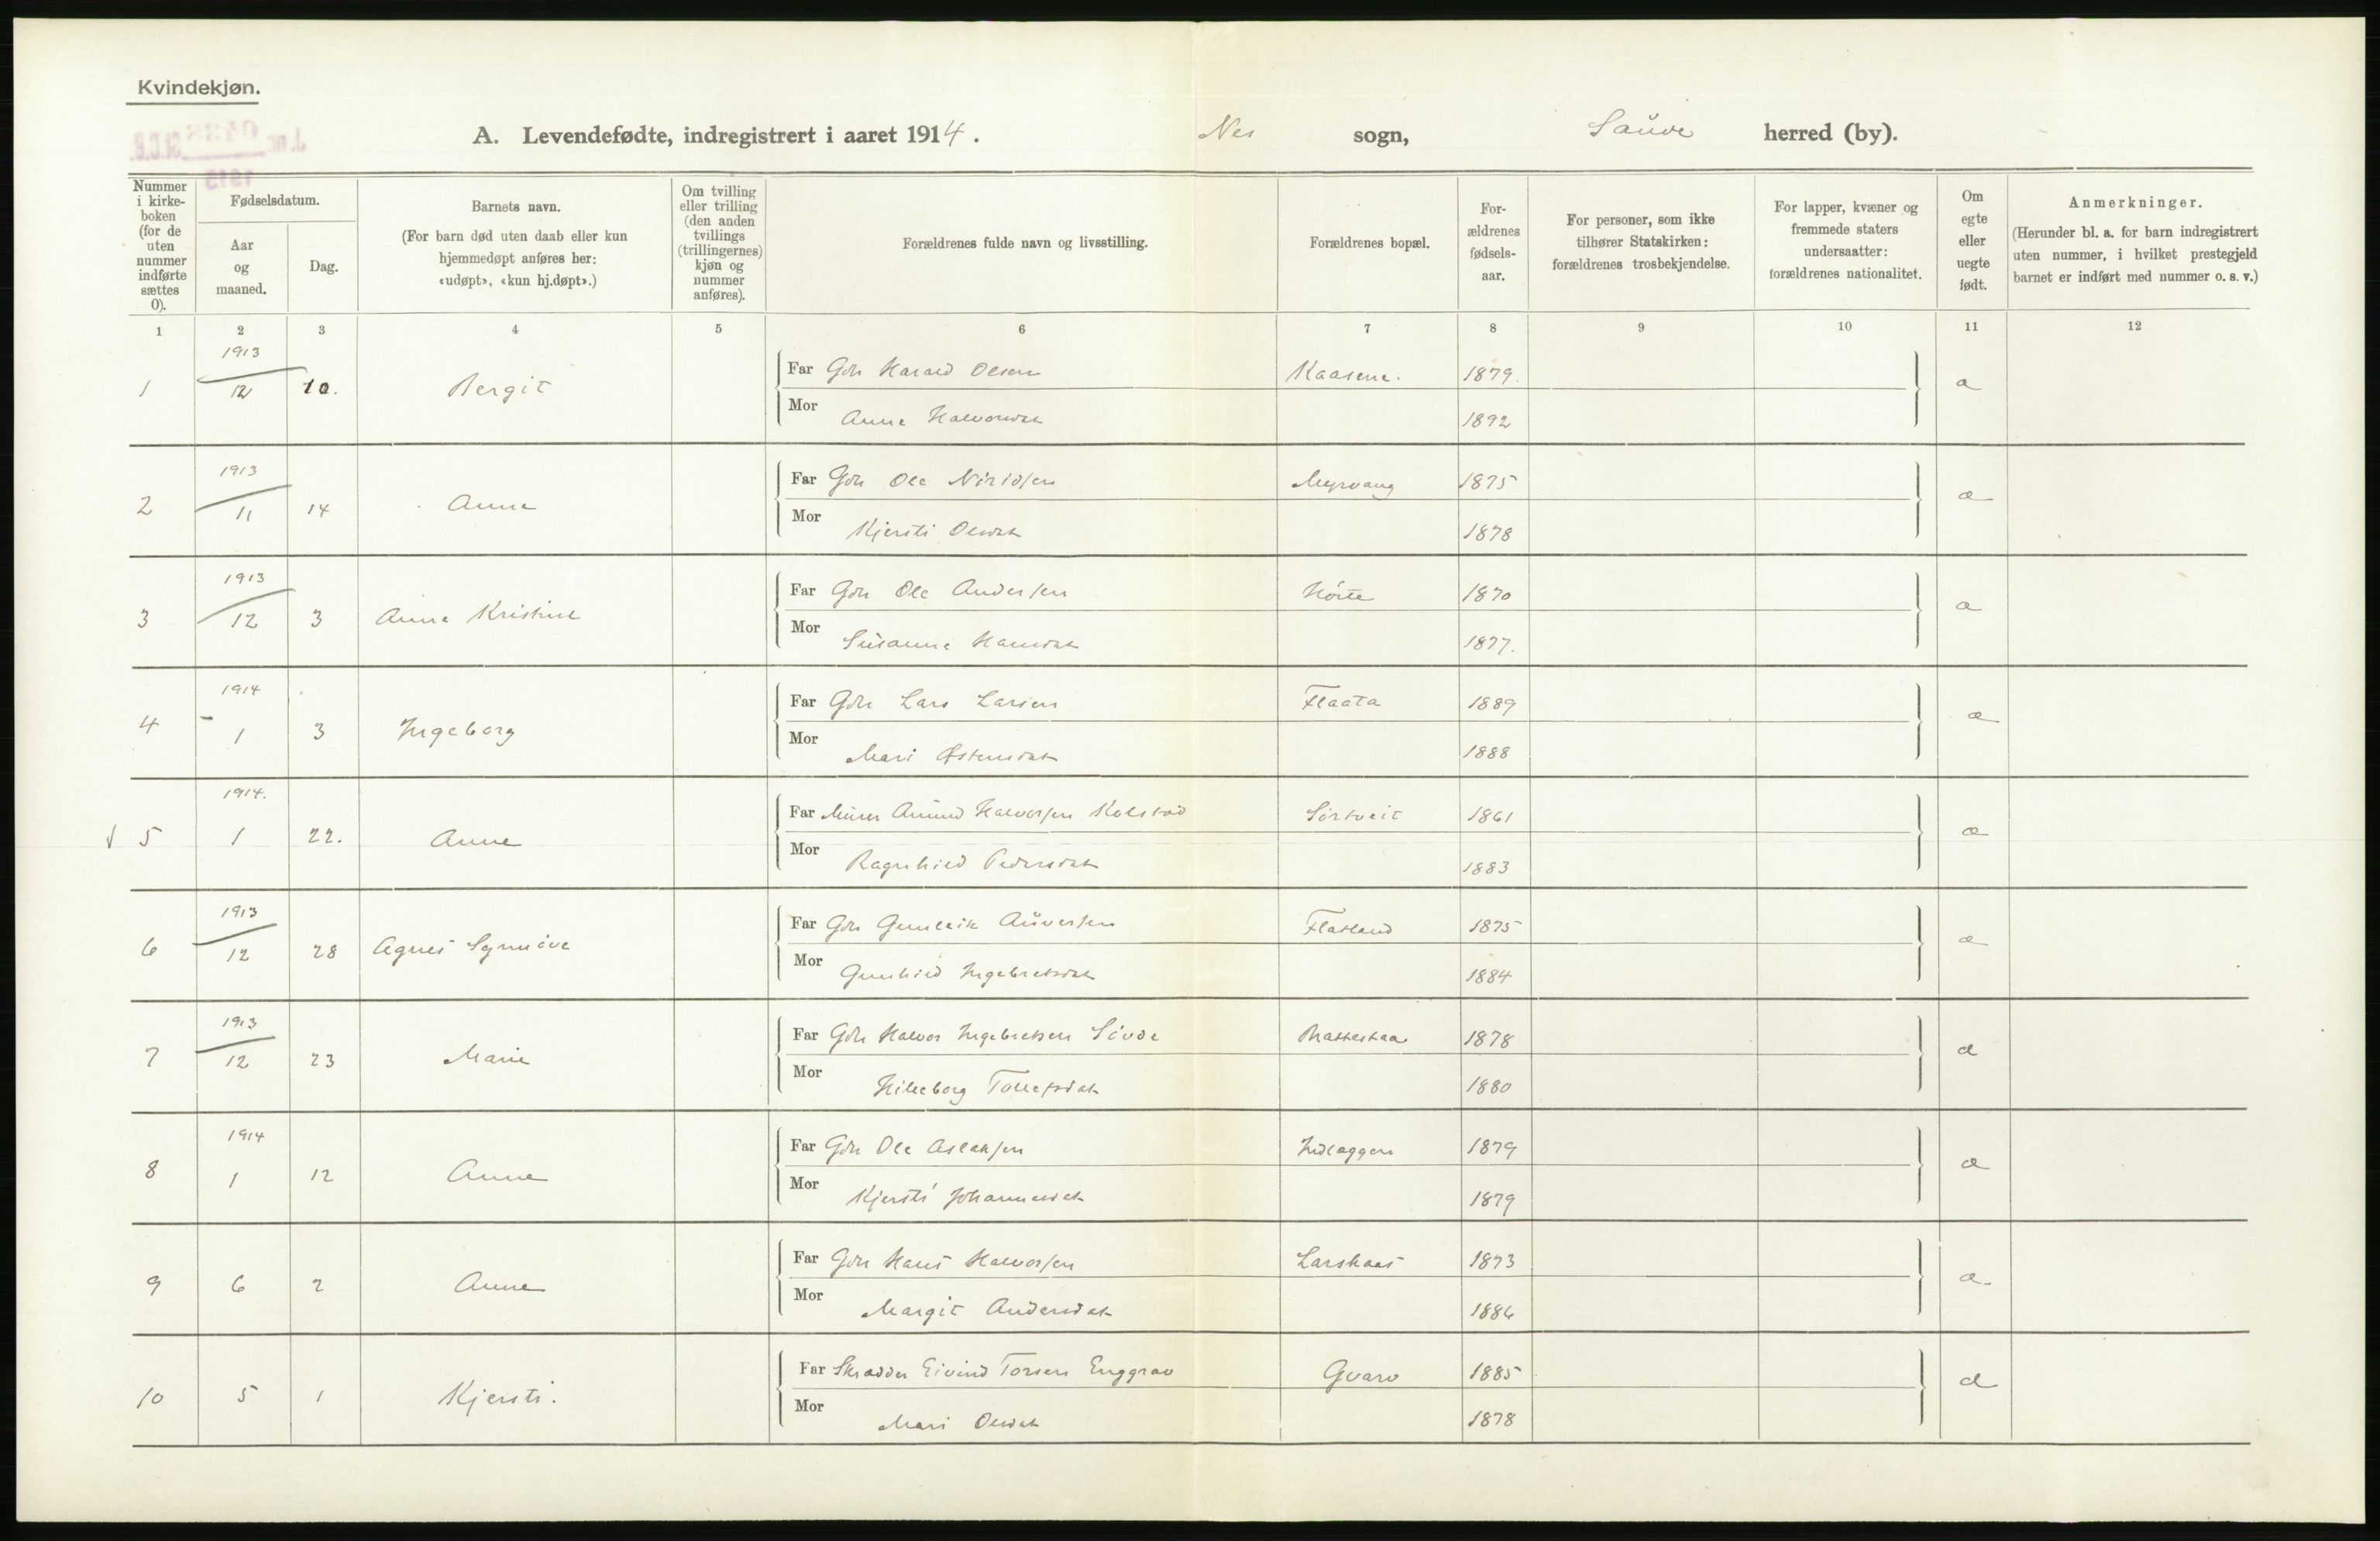 Kvindekjøn.
A. Levendefødte, indregistrert i aaret 1914. Nes sogn, Saude herred (by).
Nummer i kirke-boken (for de uten nummer indførte sættes 0).
Fødselsdatum.
Aar og maaned.
Dag.
Barnets navn.
(For barn død uten daab eller kun hjemmedøpt anføres her: «udøpt», «kun hj.døpt».)
Om tvilling eller trilling (den anden tvillings (trillingernes) kjøn og nummer anføres).
Forældrenes fulde navn og livsstilling.
Forældrenes bopæl.
For-ældrenes fødsels-aar.
For personer, som ikke tilhører Statskirken: forældrenes trosbekjendelse.
For lapper, kvæner og fremmede staters undersaatter: forældrenes nationalitet.
Om egte eller uegte født.
Anmerkninger.
(Herunder bl. a. for barn indregistrert uten nummer, i hvilket prestegjeld barnet er indført med nummer o. s. v.)
1 2 3 4 5 6 7 8 9 10 11 12
1 1913 12 10. Bergit Far Gdr Harald Olsen Kaasene. 1879. a
Mor Anne Halvorsdat 1892
2 1913 11 14 Anne Far Gdr Ole Niridsen Myrvang 1875 a
Mor Kjersti Olsdat 1878
3 1913 12 3 Anne Kristine Far Gdr Ole Andersen 1870 a
Mor Susanne Hansdat 1877.
4 1914 1 3 Ingeborg Far Gdr Lars Larsen Flaata 1889 a
Mor Mari Østensdat 1888
5 1914. 1 22. Anne Far Murer Amund Halvorsen Kolstad Sørtveit 1861 a
Mor Ragnhild Pedersdat 1883
6 1913 12 28 Agnes Synnöve Far Gdr Gunleik Auversen Flatland 1875 a
Mor Gunhild Ingebretsdat 1884
7 1913 12 23 Marie Far Gdr Halvor Ingebretsen 1878 a
Mor Hilleborg Tollefsdat 1880
8 1914 1 12 Anne Far Gdr Ole Aslaksen Indlæggen 1879 a
Mor Kjersti Johannesdat 1879
9 6 2 Anne Far Gdr Hans Halvorsen Larskaas 1873 a.
Mor Margit Andersdat 1886
10 5 1 Kjersti. Far Skrædder Eivind Torsen Enggrav Gvarv 1885 a
Mor Mari Olsdat 1878